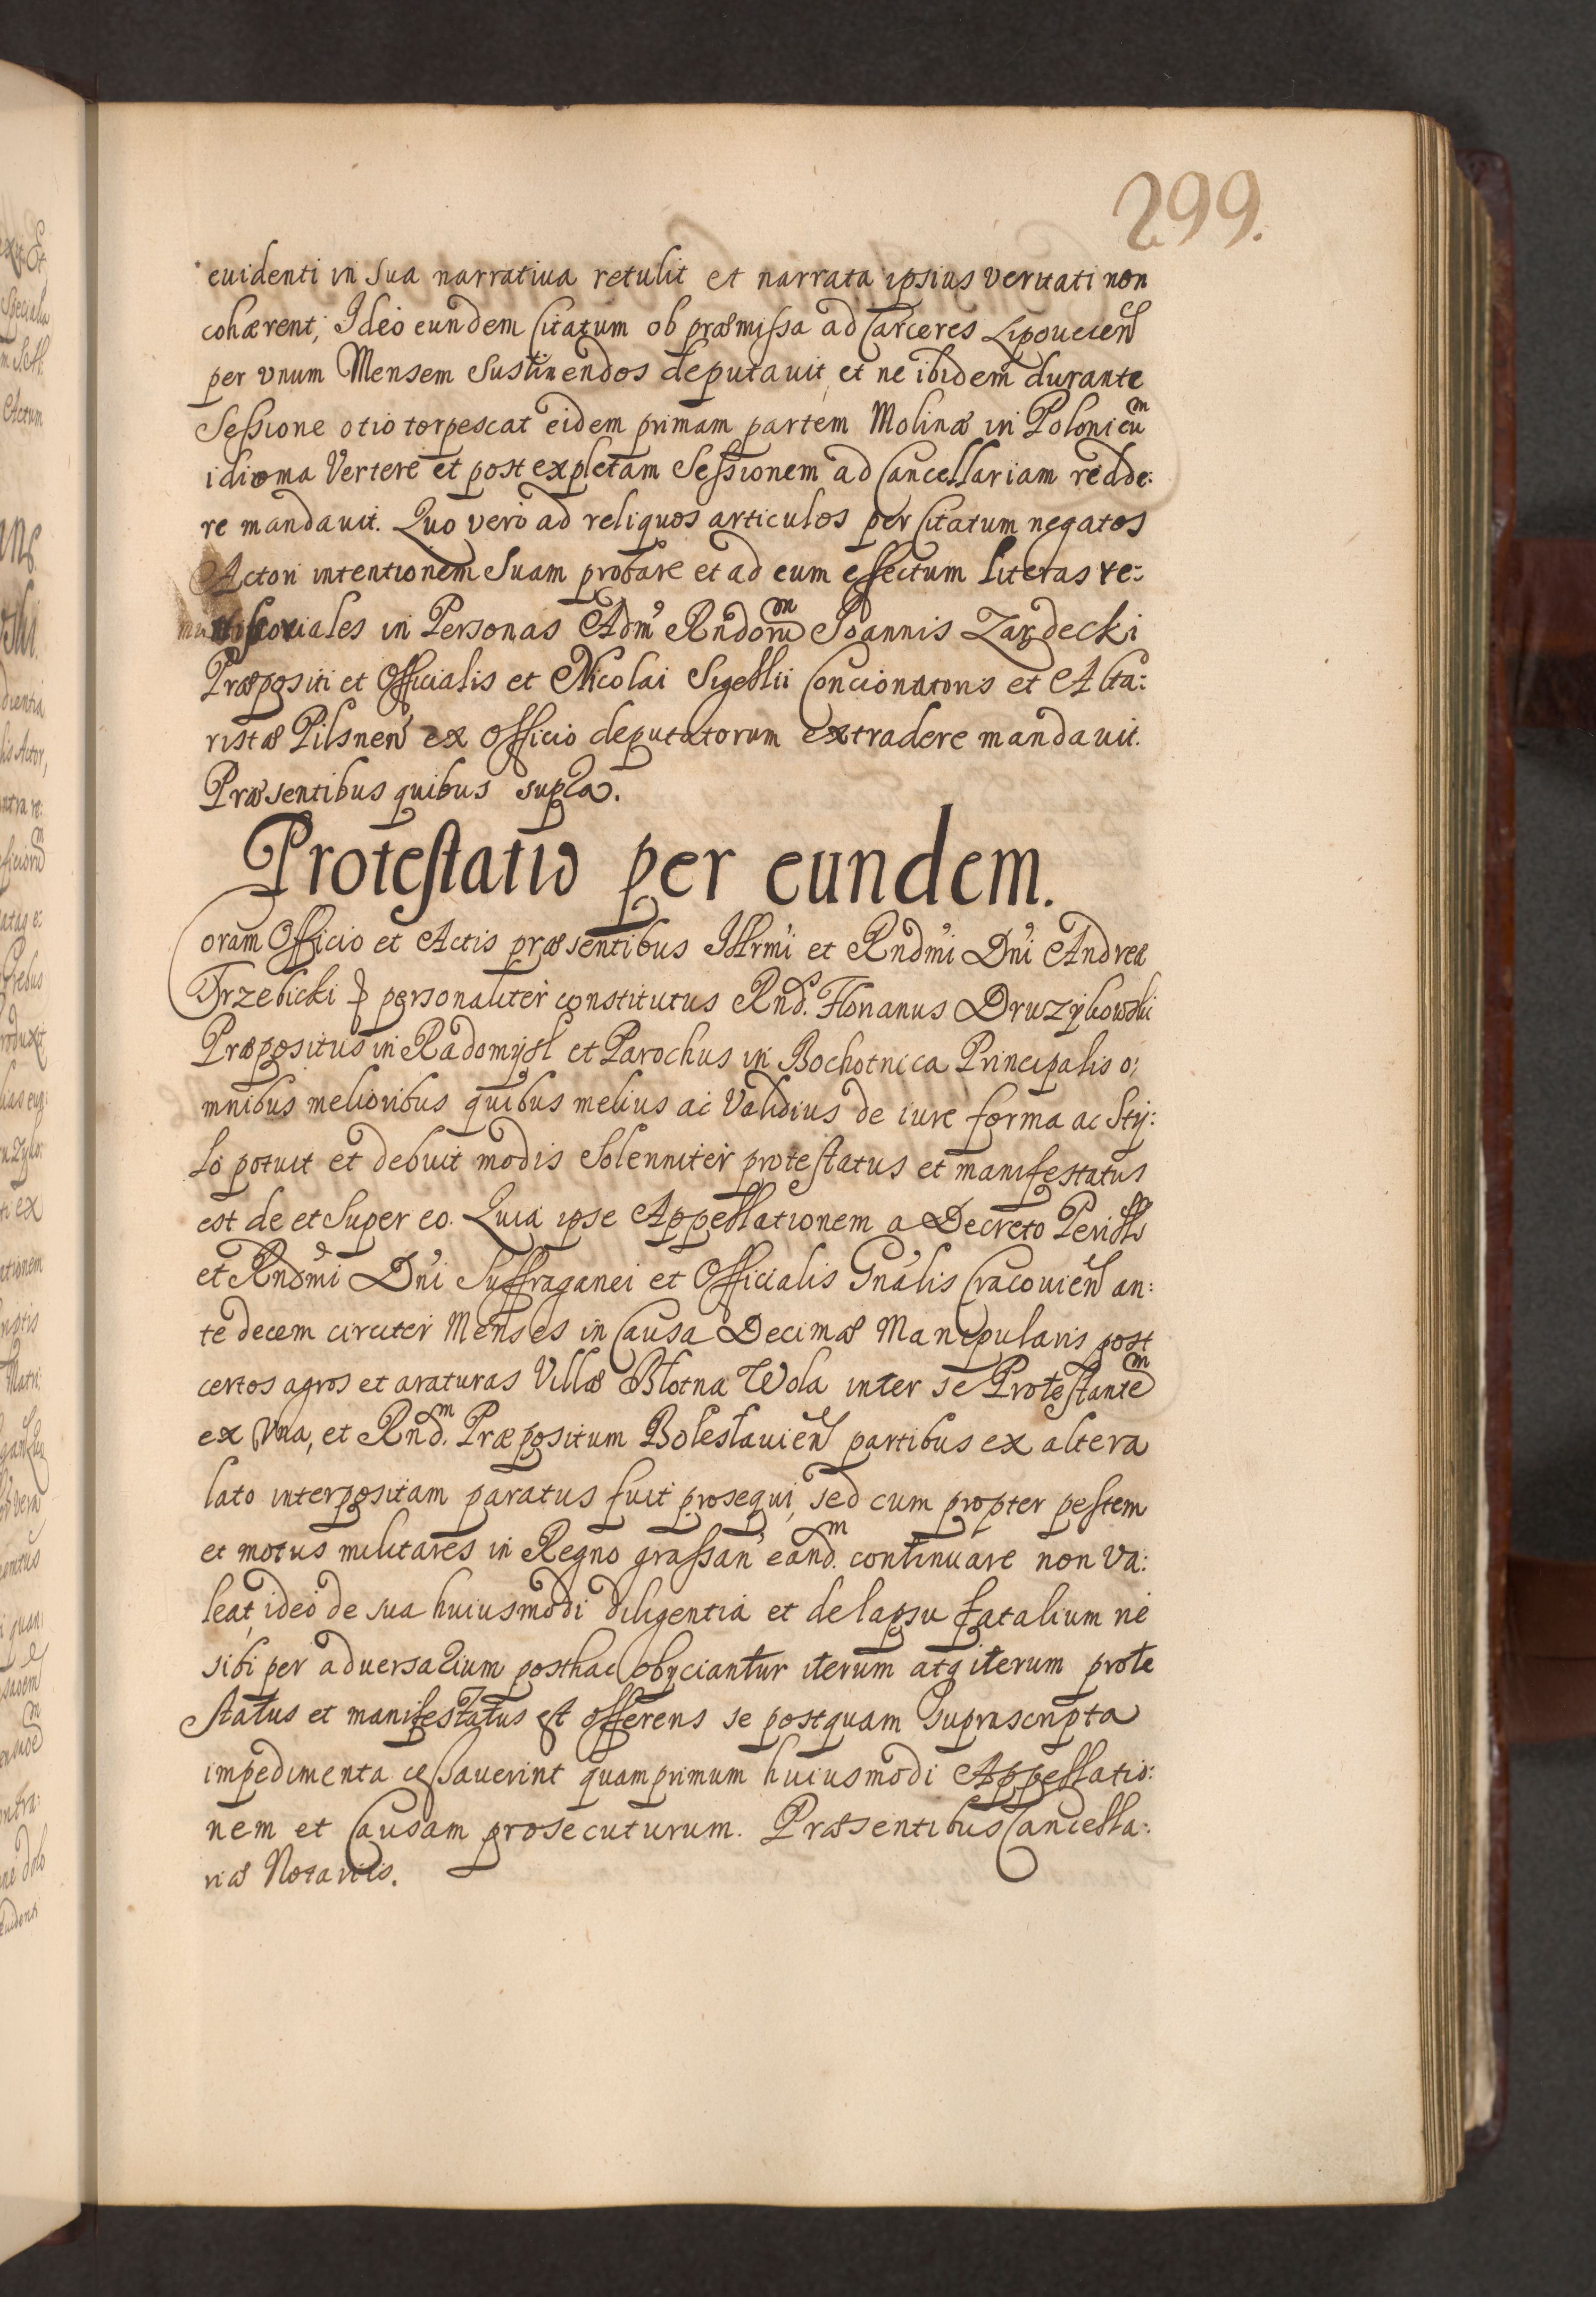 299.
euidenti in sua narratiua retulit et narrata ipsius veritati non
cohærent; Ideo eundem Citatum ob præmissa ad Carceres Lipouecen̄
per vnum Mensem Sustinendos deputauit, et ne ibidem durante
Sessione otio torpescat eidem primam partem Molinæ in Polonicūm
idioma Vertere et post expletam Sessionem ad Cancellariam redde:
re mandauit. Quo vero ad reliquos articulos per Citatum negatos
Actori intentionem Suam probare et ad eum effectum literas re:
missoriales in Personas Adm̄ Rndorūm Joannis Zardecki
Præpositi et Officialis et Nicolai Sigellii Concionatoris et Alta:
ristæ Pilsnen̄ ex Officio deputatorum extradere mandauit.
Præsentibus quibus supra.
Protestatio per eundem.
Coram Officio et Actis præsentibus Illrm̄i et Rndm̄i Dn̄i Andreæ
Trzebicki personaliter constitutus Rnd. Florianus Druzykowski
Præpositus in Radomysl et Parochus in Bochotnica Principalis o:
mnibus melioribus quibus melius ac Validius de iure forma ac Sty:
lo potuit et debuit modis Solenniter protestatus et manifestatus
est de et Super eo. Quia ipse Appellationem a Decreto Perillris
et Rndm̄i Dn̄i Suffraganei et Officialis Gn̄alis Cracouien̄ an:
te decem circiter Menses in Causa Decimæ Manipularis post
certos agros et araturas Villæ Błotna Wola inter se Protestantem
ex Vna, et Rnd.m Præpositum Bolestauien̄ partibus ex altera
lato interpositam paratus fuit prosequi, sed cum propter pestem
et motus militares in Regno grassan̄ eand.m continuare non va:
leat, ideo de sua huiusmodi diligentia et de lapsu fatalium ne
sibi per aduersarium posthac obyciantur iterum atq iterum prote
status et manifestatus est offerens se postquam suprascripta
impedimenta cessauerint quamprimum huiusmodi Appellatio:
nem et Causam prosecuturum. Præsentibus Cancella:
riæ Notariis.